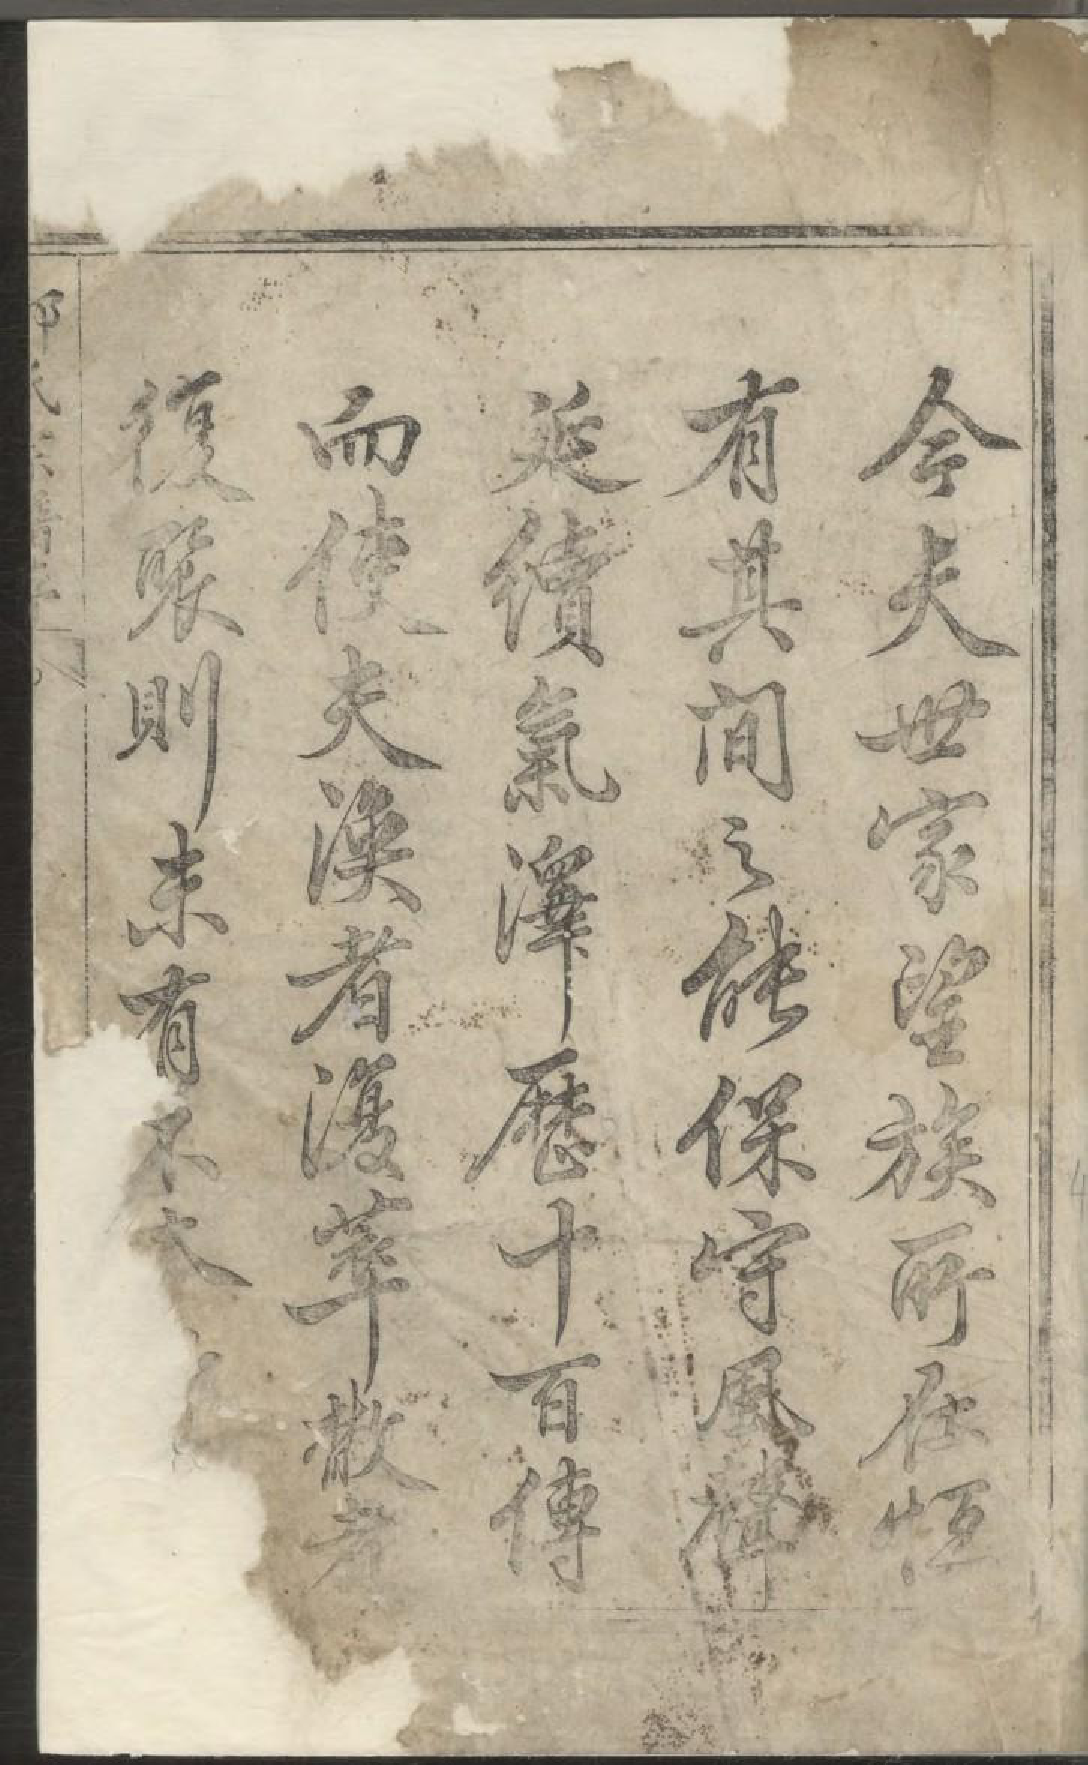 今夫世家望族所在恒
有其間之能保守風聲
延續氣澤歷十百傳
而使夫渙者復萃散者
復聚則未有不大
氏